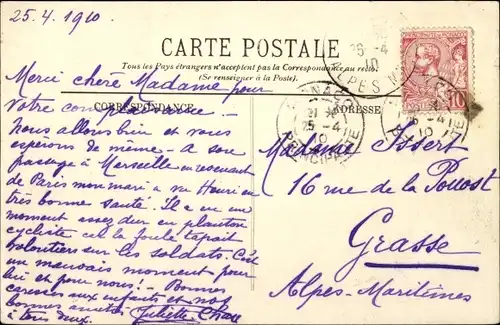 25.4.1910
CARTE POSTALE
Tous les Pays étrangers n'acceptent pas la Correspondance au recto.
(Se renseigner à la Poste).
CORRESPONDANCE
ADRESSE
Merci chère Madame pour
votre complaisance
Nous allons bien et vous
espérons de même. A son
passage à Marseille en revenant
de Paris mon mari a vu Henri en
très bonne santé. Il a eu un
moment assez dur en planton
cycliste car la foule tapait
volontiers sur les soldats. C'ét
un mauvais moment pour
lui et pour nous! Bonnes
caresses aux enfants et nos
bonnes amitiés
à tous deux. Juliette
Madame Issert
16 rue de la Pouost
Grasse
Alpes-Maritimes
25-4
10
PRINCIPAUTE
10